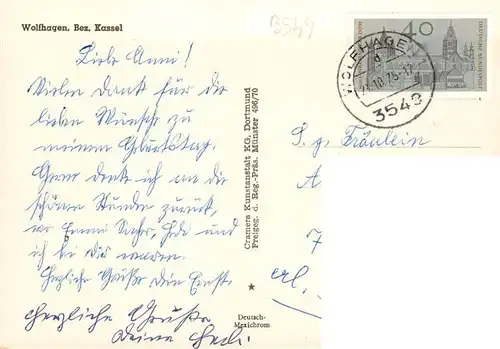 Wolfhagen, Bez. Kassel
3549
Liebe Anni!
Vielen Dank für die
lieben Wünsche zu
meinem Geburtstag.
Gerne denk ich an die
schönen Stunden zurück,
wo Emmi und
ich bei dir waren.
Herzliche Grüße Dein Ernst.
Herzliche Grüße
Deine
Cramers Kunstanstalt KG, Dortmund
Freigeg. d. Reg.-Präs. Münster 496/70
★
Deutsch-
Mexichrom
40
DEUTSCHE BUNDESPOST
WOLFHAGEN
d
3549
S. g. Fräulein
A
7